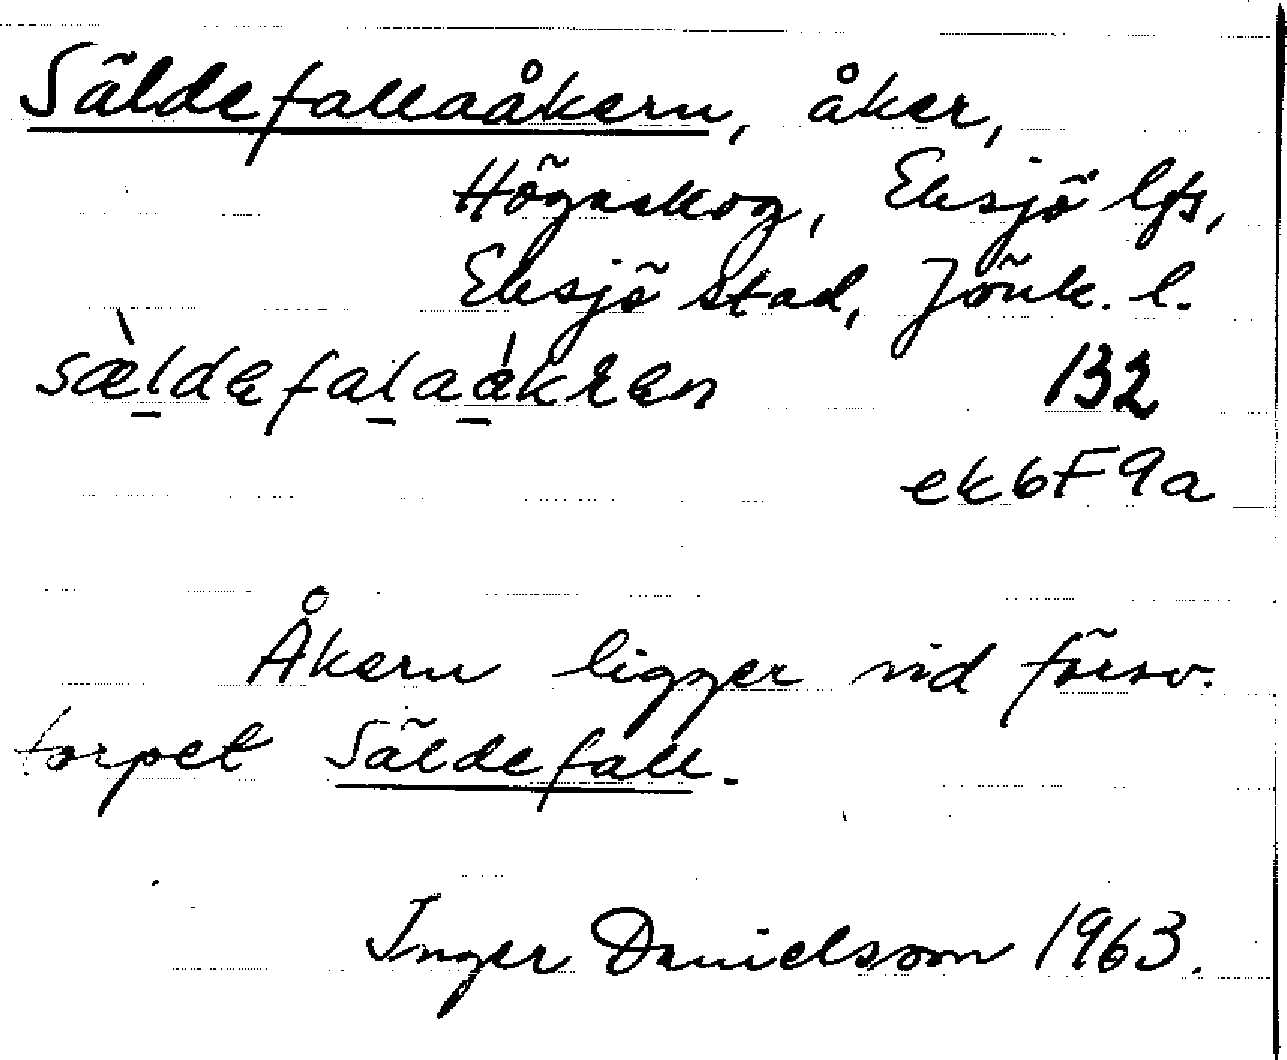 Säldefallaåkern, åker,
Högaskog, Eksjö lfs,
Eksjö stad, Jönk. l.
sæ̀ldefalaákren 132
ek6F9a
Åkern ligger vid försv.
torpet Säldefall.
Inger Danielsson 1963.